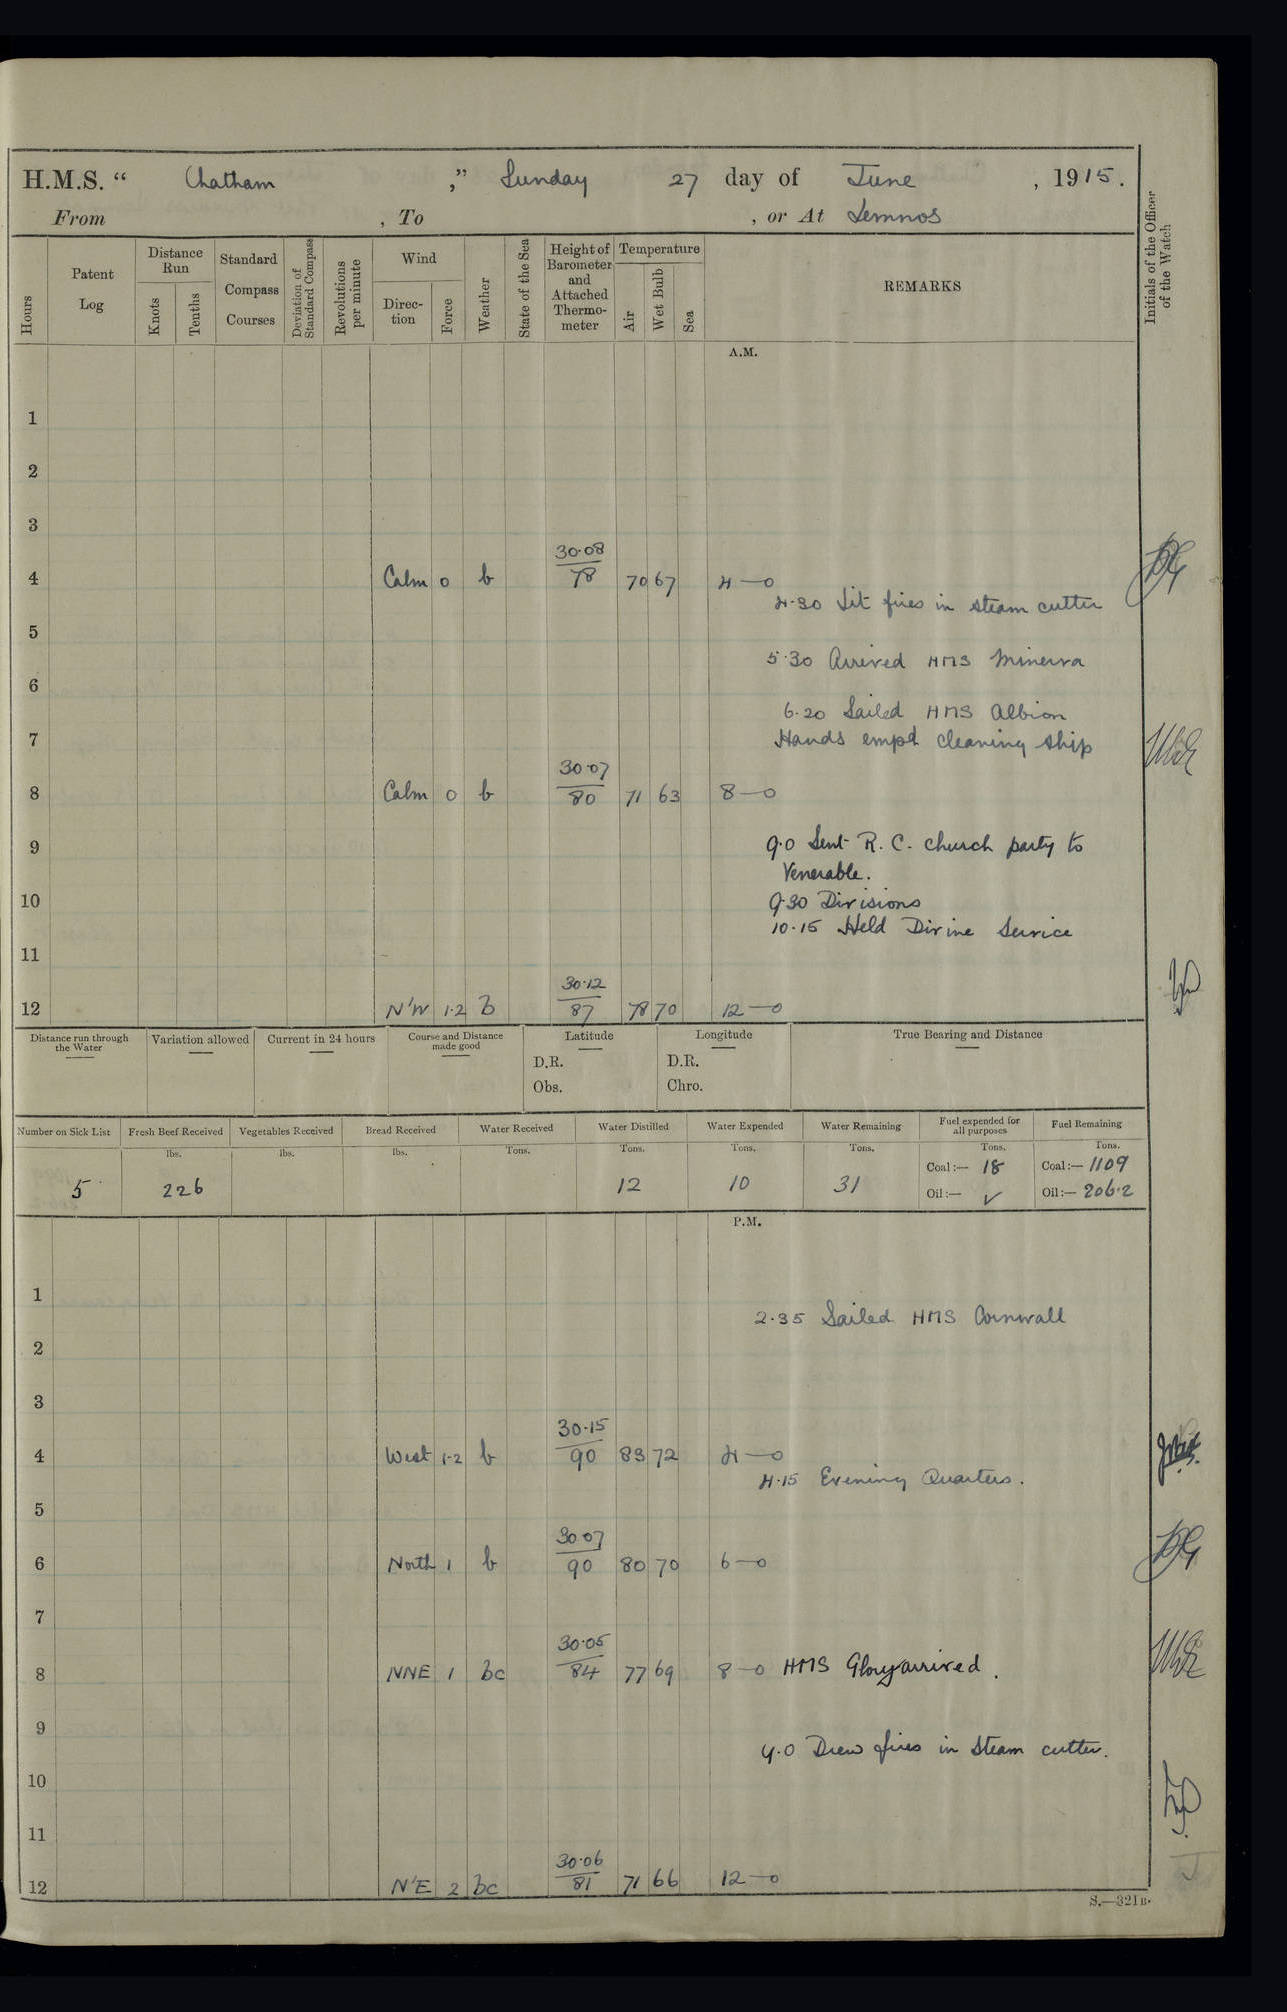 H.M.S. “ Chatham ,” Sunday 27 day of June , 1915.
From , To , or At Lemnos
Hours
Patent Log
Distance Run
Knots
Tenths
Standard Compass Courses
Deviation of Standard Compass
Revolutions per minute
Wind
Direc-tion
Force
Weather
State of the Sea
Height of Barometer and Attached Thermo-meter
Temperature
Air
Wet Bulb
Sea
REMARKS
Initials of the Officer of the Watch
A.M.
1
2
3
30·08
4 Calm 0 b 78 70 67 4—0
4·30 Lit fires in steam cutter
5
5·30 Arrived HMS Minerva
6
6·20 Sailed HMS Albion
7 Hands empd cleaning ship
30·07
8 Calm 0 b 80 71 63 8—0
9 9·0 Sent R. C. church party to
Venerable.
10 9·30 Divisions
10·15 Held Divine Service
11
30·12
12 N'W 1·2 b 87 78 70 12—0
Distance run through the Water
Variation allowed
Current in 24 hours
Course and Distance made good
Latitude
D.R.
Obs.
Longitude
D.R.
Chro.
True Bearing and Distance
Number on Sick List
5
Fresh Beef Received
lbs.
226
Vegetables Received
lbs.
Bread Received
lbs.
Water Received
Tons.
Water Distilled
Tons.
12
Water Expended
Tons.
10
Water Remaining
Tons.
31
Fuel expended for all purposes
Tons.
Coal:— 18
Oil:— ✓
Fuel Remaining
Tons.
Coal:— 1109
Oil:— 206·2
P.M.
1
2·35 Sailed HMS Cornwall
2
3
30·15
4 West 1·2 b 90 83 72 4—0
4·15 Evening Quarters.
5
30 07
6 North 1 b 90 80 70 6—0
7
30·05
8 NNE 1 bc 84 77 69 8—0 HMS Glory arrived.
9
9·0 Drew fires in Steam cutter.
10
11
30·06
12 N'E 2 bc 81 71 66 12—0
S.—321B.